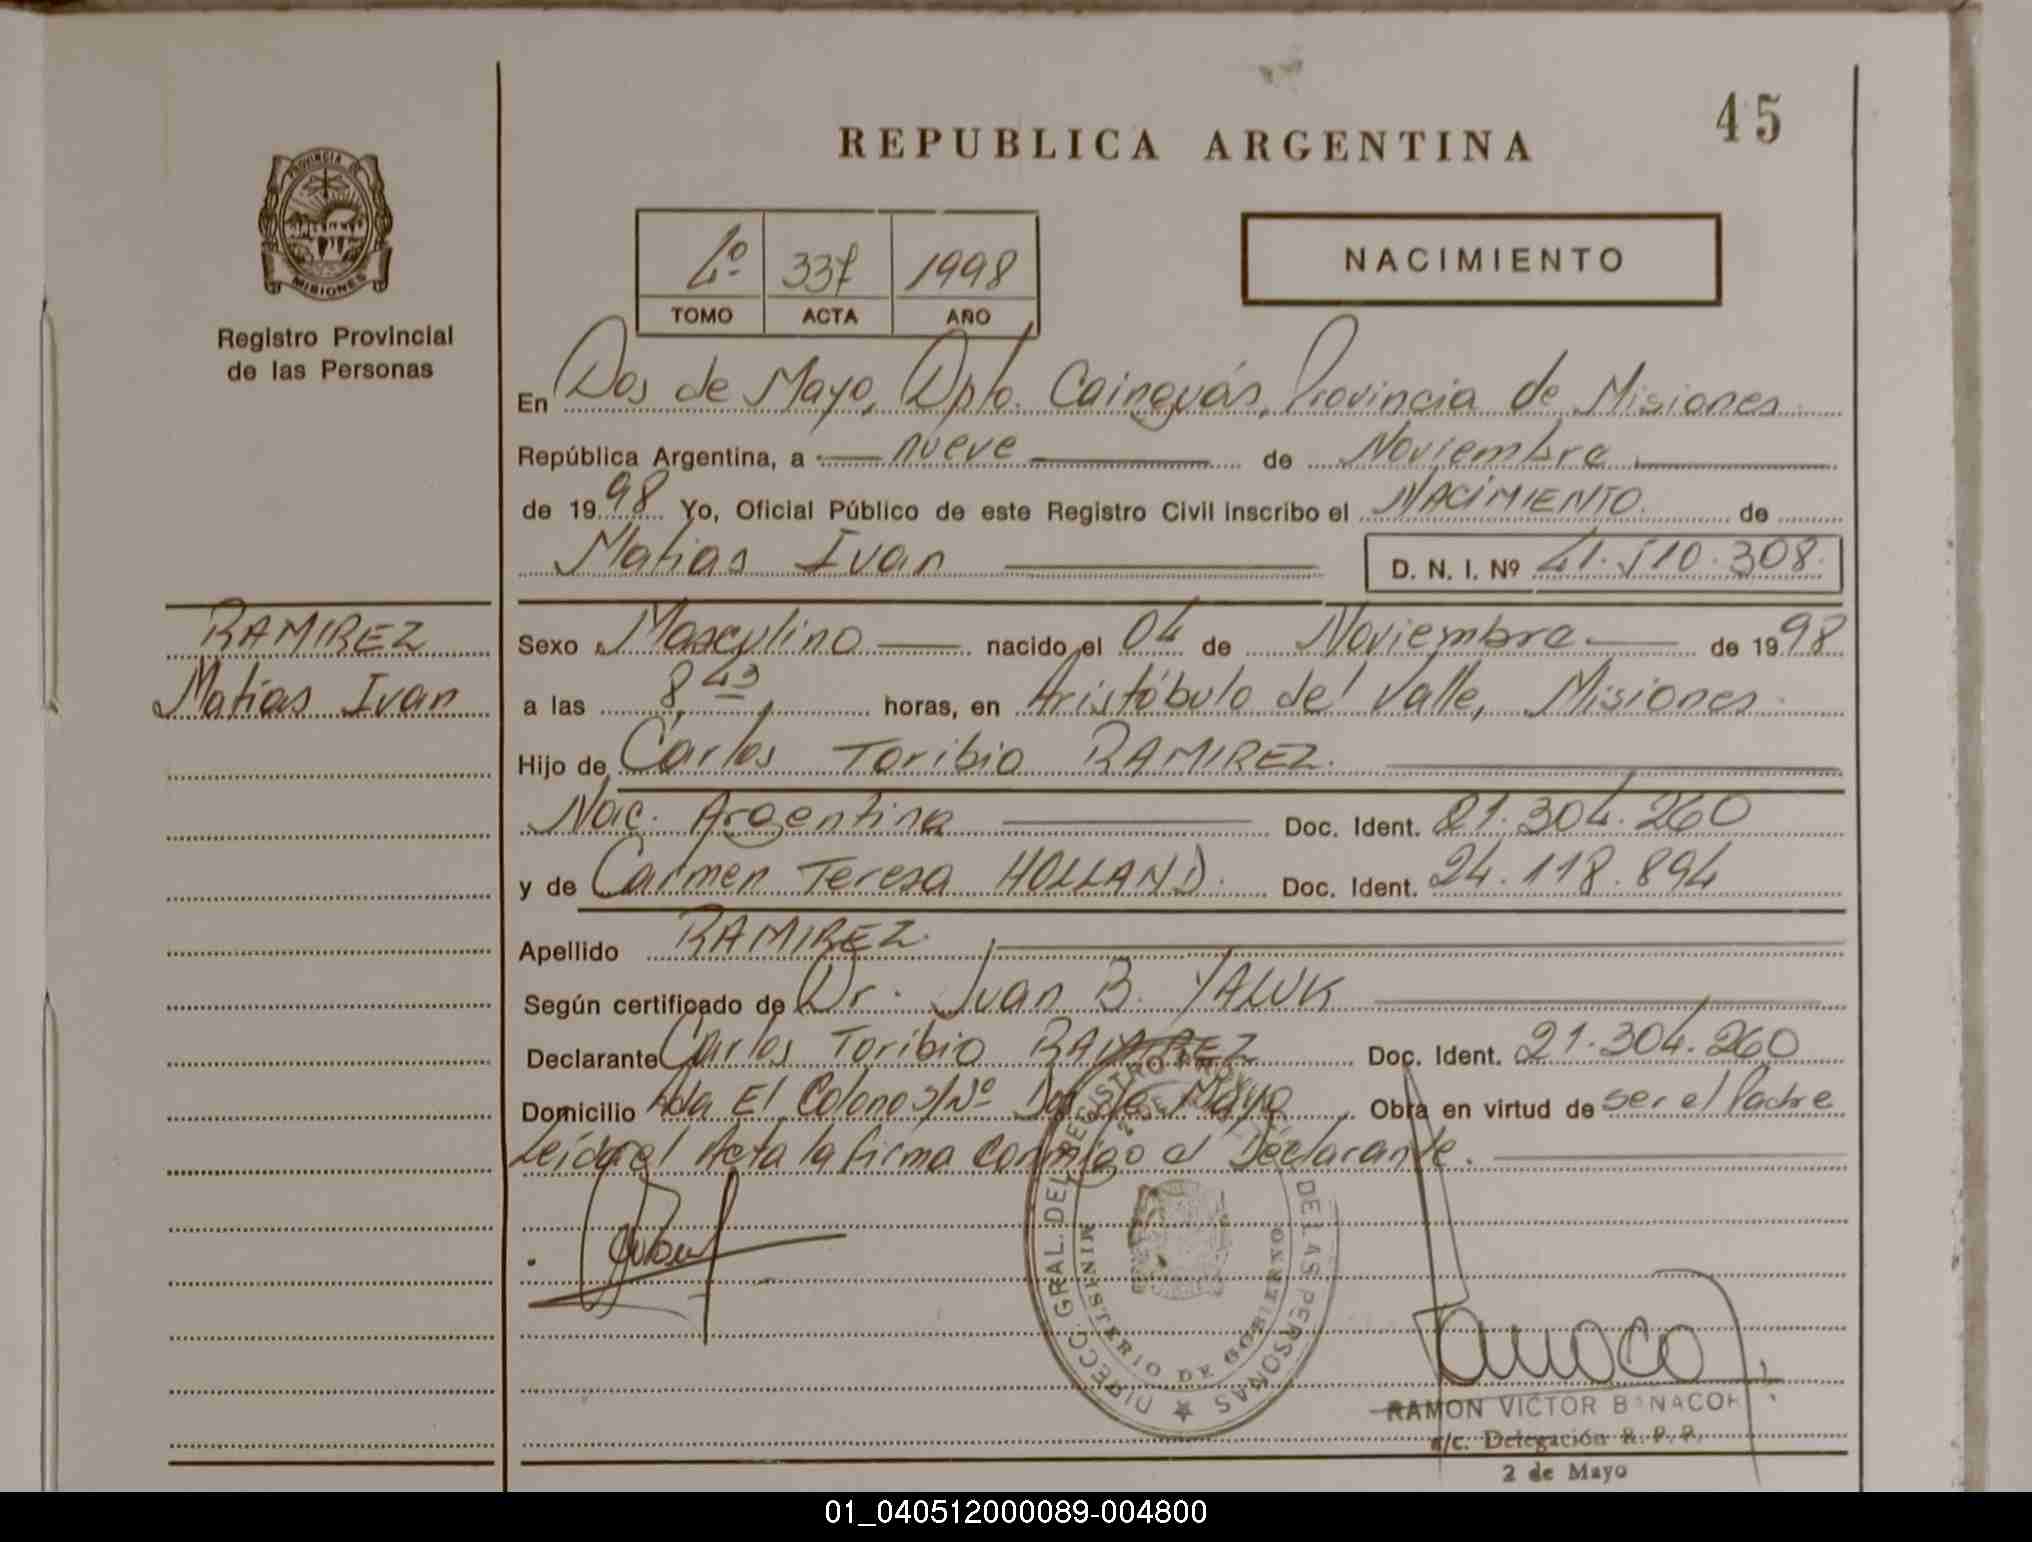 45
REPUBLICA ARGENTINA
PROVINCIA DE
MISIONES
Registro Provincial
de las Personas
4º 337 1998
TOMO ACTA AÑO
NACIMIENTO
En Dos de Mayo, Dpto. Cainguás, Provincia de Misiones
República Argentina, a nueve de Noviembre
de 1998 Yo, Oficial Público de este Registro Civil inscribo el NACIMIENTO de
Matias Ivan D. N. I. Nº 41.510.308.
RAMIREZ
Matias Ivan
Sexo Masculino nacido el 04 de Noviembre de 1998
a las 8,43 horas, en Aristóbulo del Valle, Misiones
Hijo de Carlos Toribio RAMIREZ.
Nac. Argentina Doc. Ident. 21.304.260
y de Carmen Teresa HOLLAND. Doc. Ident. 24.118.894
Apellido RAMIREZ.
Según certificado de Dr. Juan B. YALUK
Declarante Carlos Toribio RAMIREZ Doc. Ident. 21.304.260
Domicilio Avda El Colono S/Nº Dos de Mayo Obra en virtud de ser el Padre
Leída el Acta la firma conmigo el Declarante.
DIRECC. GRAL. DEL REGISTRO PROV. DE LAS PERSONAS
MINISTERIO DE GOBIERNO
RAMON VICTOR
a/c. Delegación R. P. P.
2 de Mayo
01_040512000089-004800